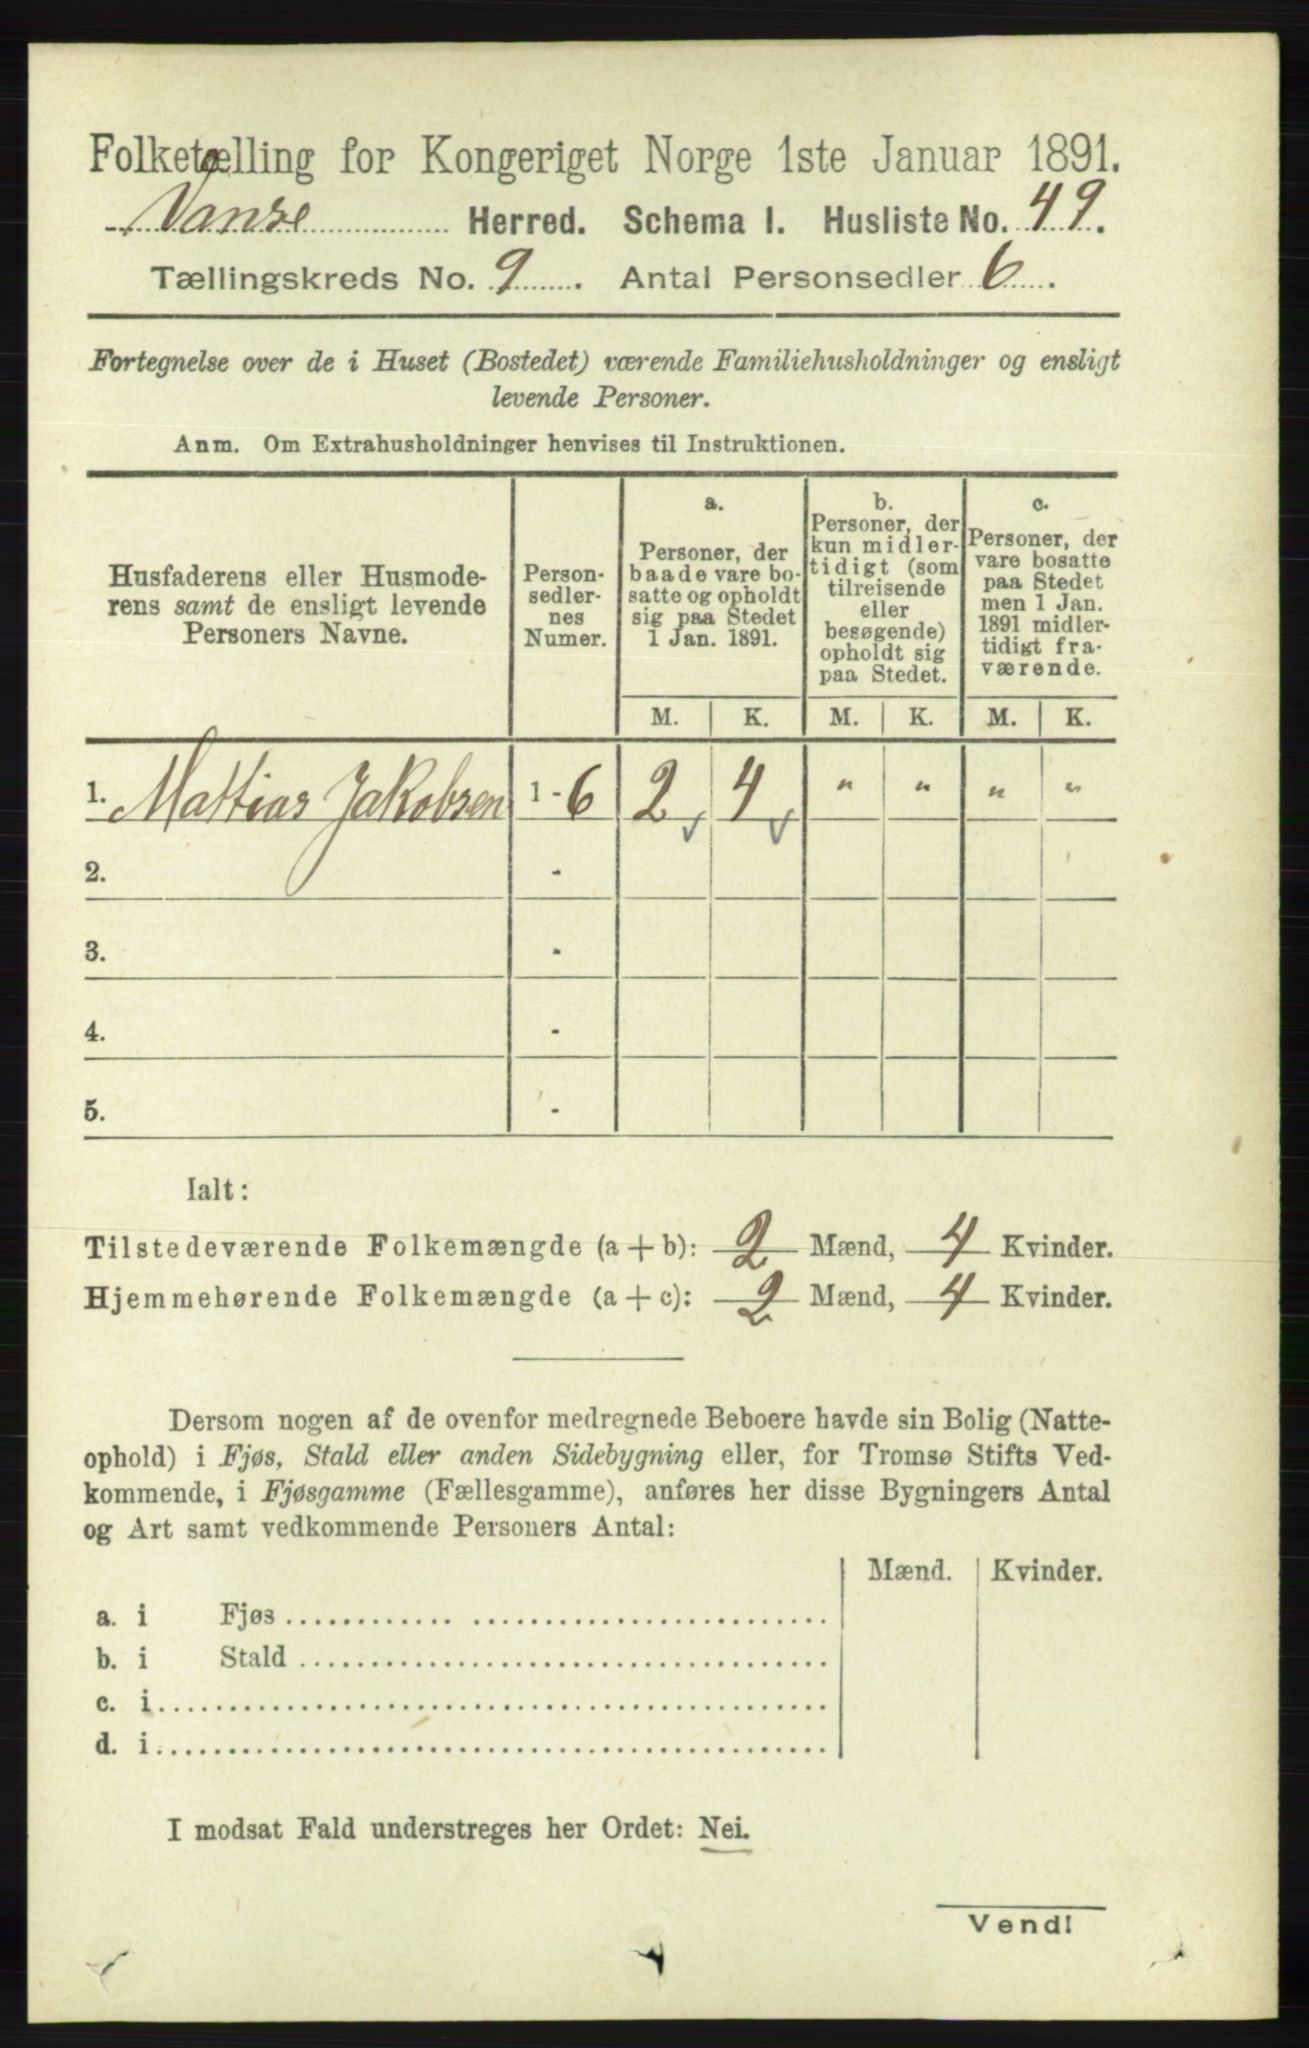 Folketælling for Kongeriget Norge 1ste Januar 1891.
Vanse Herred. Schema I. Husliste No. 49.
Tællingskreds No. 9. Antal Personsedler 6.
Fortegnelse over de i Huset (Bostedet) værende Familiehusholdninger og ensligt
levende Personer.
Anm. Om Extrahusholdninger henvises til Instruktionen.
Husfaderens eller Husmode-
rens samt de ensligt levende
Personers Navne.
Person-
sedler-
nes
Numer.
a.
Personer, der
baade vare bo-
satte og opholdt
sig paa Stedet
1 Jan. 1891.
b.
Personer, der
kun midler-
tidigt (som
tilreisende
eller
besøgende)
opholdt sig
paa Stedet.
c.
Personer, der
vare bosatte
paa Stedet
men 1 Jan.
1891 midler-
tidigt fra-
værende.
M. K. M. K. M. K.
1. Mattias Jakobsen 1 - 6 2 4 " " " "
2. -
3. -
4. -
5. -
Ialt:
Tilstedeværende Folkemængde (a + b): 2 Mænd, 4 Kvinder.
Hjemmehørende Folkemængde (a + c): 2 Mænd, 4 Kvinder.
Dersom nogen af de ovenfor medregnede Beboere havde sin Bolig (Natte-
ophold) i Fjøs, Stald eller anden Sidebygning eller, for Tromsø Stifts Ved-
kommende, i Fjøsgamme (Fællesgamme), anføres her disse Bygningers Antal
og Art samt vedkommende Personers Antal:
Mænd. Kvinder.
a. i Fjøs
b. i Stald
c. i
d. i
I modsat Fald understreges her Ordet: Nei.
Vend!